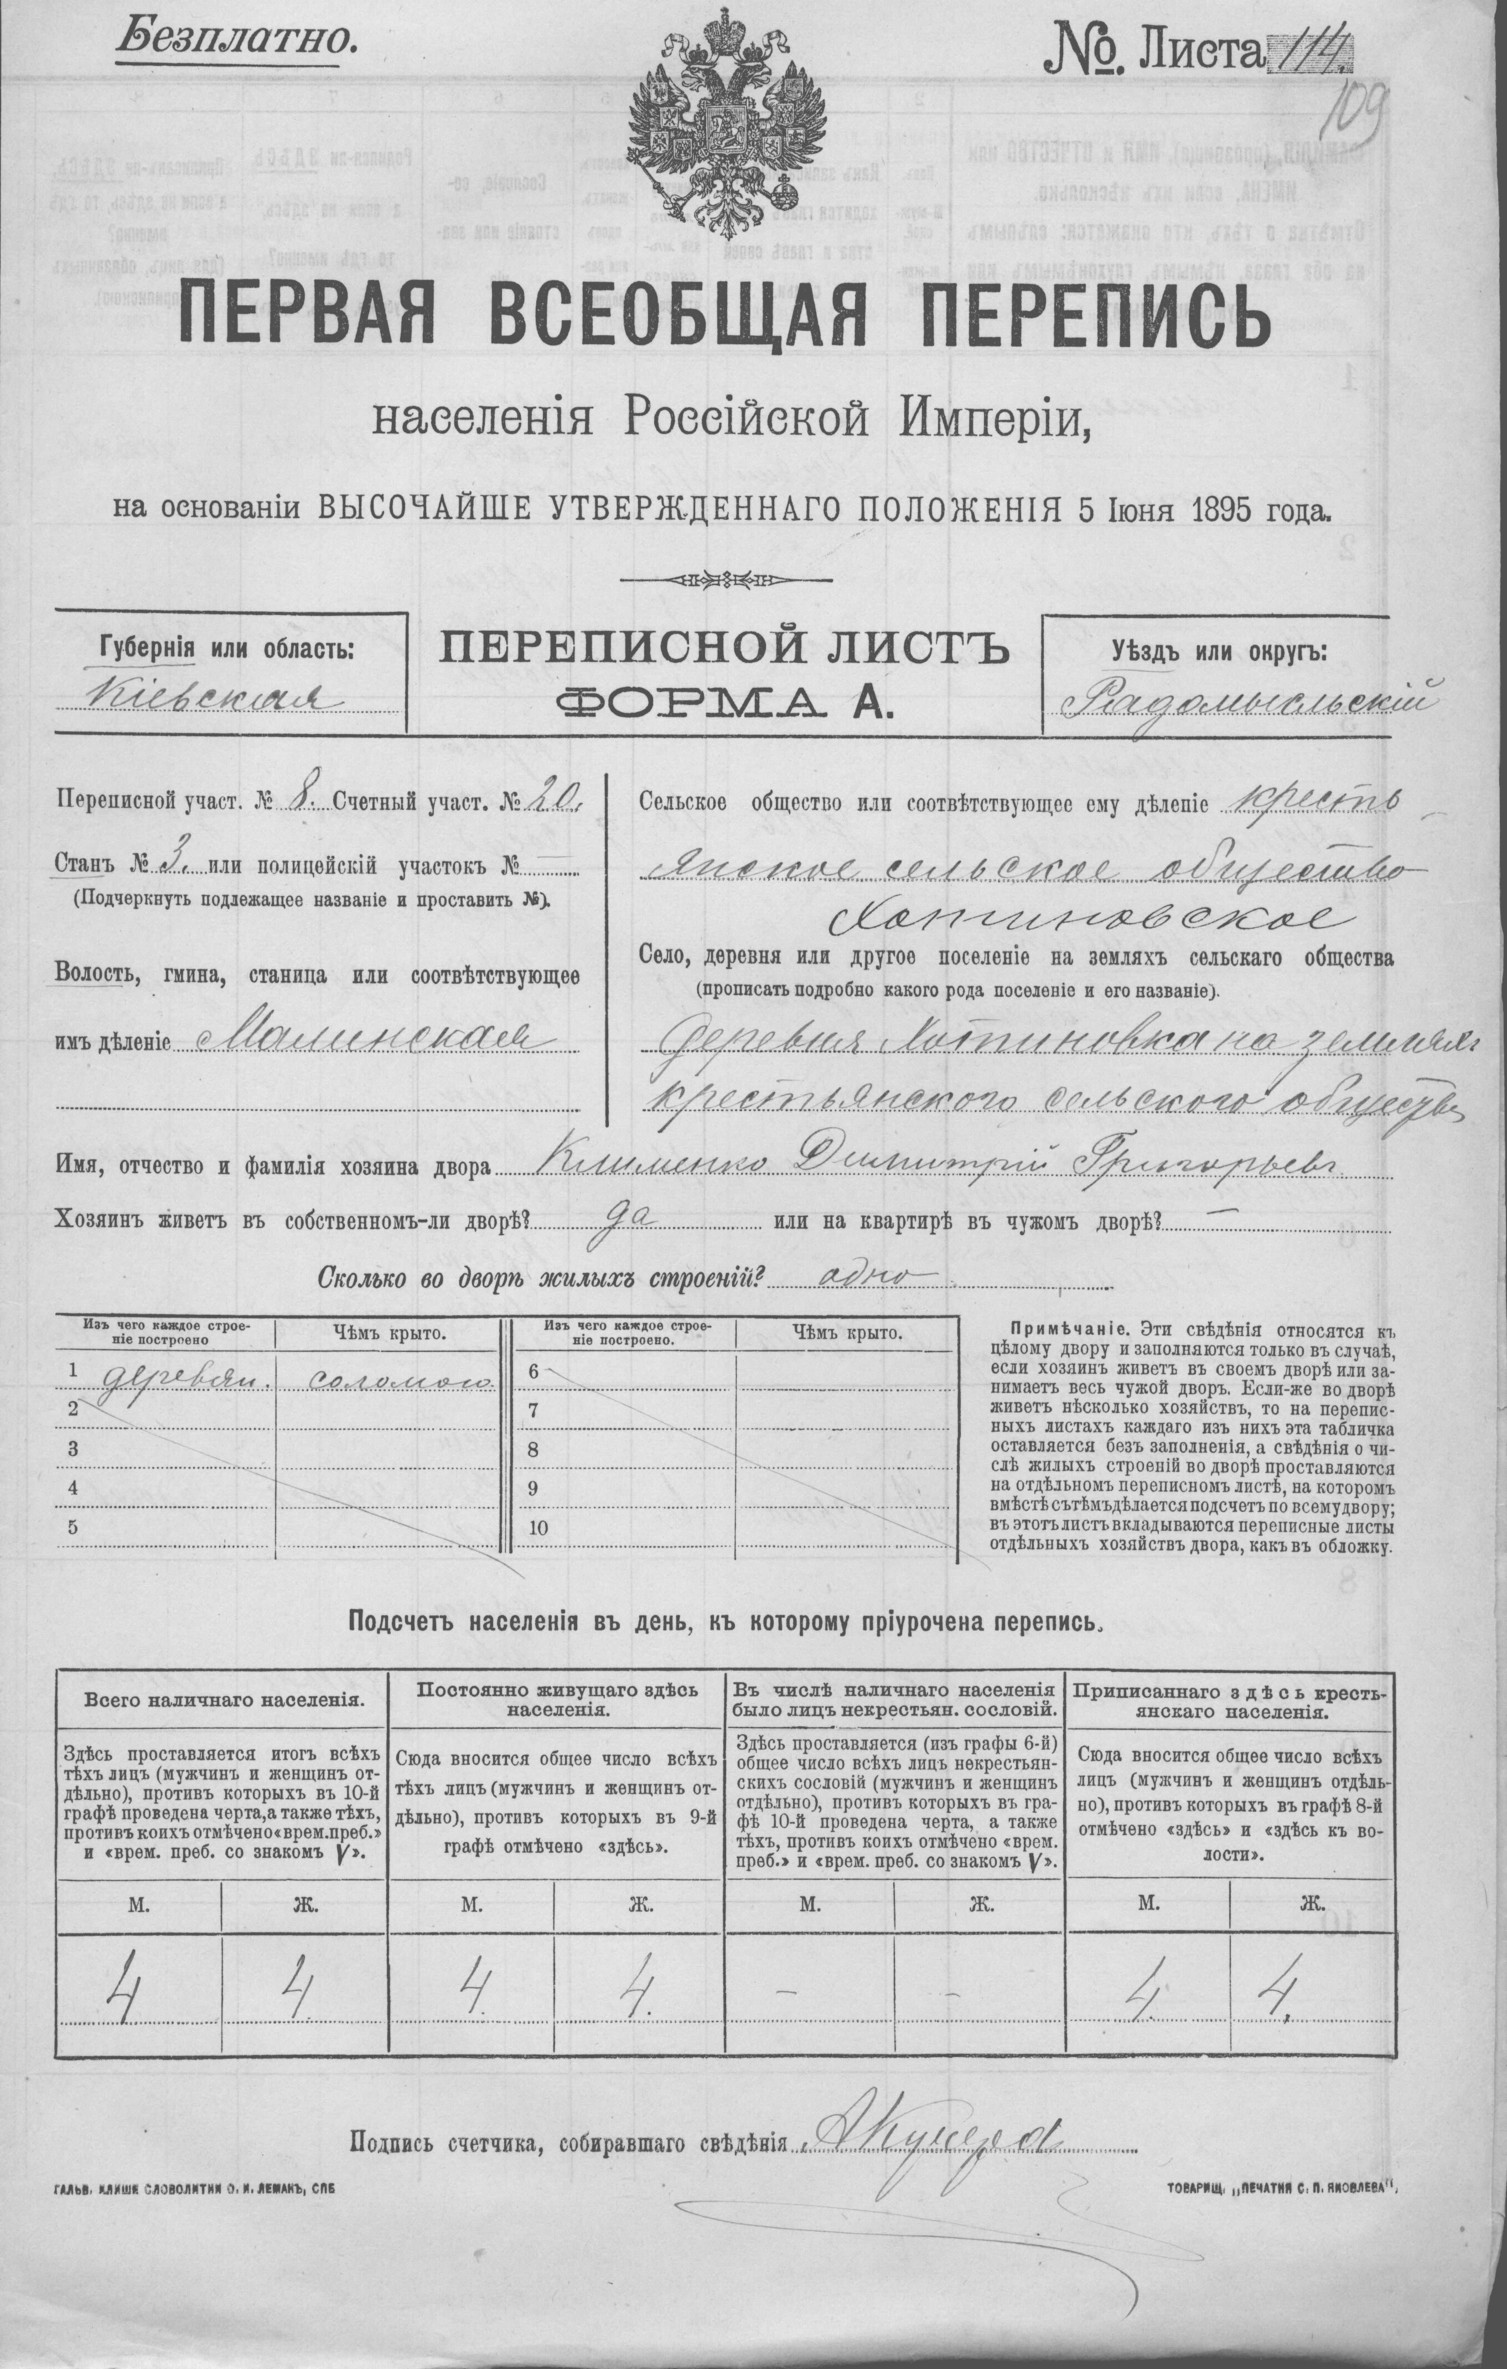 Безплатно.
№. Листа 114.
109
ПЕРВАЯ ВСЕОБЩАЯ ПЕРЕПИСЬ
населенія Россійской Имперіи,
на основаніи ВЫСОЧАЙШЕ УТВЕРЖДЕННАГО ПОЛОЖЕНІЯ 5 Іюня 1895 года.
Губернія или область:
Кіевская
ПЕРЕПИСНОЙ ЛИСТЪ
ФОРМА А.
Уѣздъ или округъ:
Радомысльскій
Переписной участ. № 8. Счетный участ. № 20.
Станъ № 3. или полицейскій участокъ № —
(Подчеркнуть подлежащее названіе и проставить №).
Волость, гмина, станица или соотвѣтствующее
имъ дѣленіе Малинская
Сельское общество или соотвѣтствующее ему дѣленіе кресть
янское сельское общество
Хотиновское
Село, деревня или другое поселеніе на земляхъ сельскаго общества
(прописать подробно какого рода поселеніе и его названіе).
деревня Хотиновка на земляхъ
крестьянского сельского общества
Имя, отчество и фамилія хозяина двора Клименко Димитрій Григорьевъ
Хозяинъ живетъ въ собственномъ-ли дворѣ? да или на квартирѣ въ чужомъ дворѣ? —
Сколько во дворѣ жилыхъ строеній? одно
Изъ чего каждое строе-
ніе построено
Чѣмъ крыто.
Изъ чего каждое строе-
ніе построено.
Чѣмъ крыто.
1 деревян. соломою 6
2 7
3 8
4 9
5 10
Примѣчаніе. Эти свѣдѣнія относятся къ
цѣлому двору и заполняются только въ случаѣ,
если хозяинъ живетъ въ своемъ дворѣ или за-
нимаетъ весь чужой дворъ. Если-же во дворѣ
живетъ нѣсколько хозяйствъ, то на перепис-
ныхъ листахъ каждаго изъ нихъ эта табличка
оставляется безъ заполненія, а свѣдѣнія о чи-
слѣ жилыхъ строеній во дворѣ проставляются
на отдѣльномъ переписномъ листѣ, на которомъ
вмѣстѣ съ тѣмъ дѣлается подсчетъ по всему двору;
въ этотъ листъ вкладываются переписные листы
отдѣльныхъ хозяйствъ двора, какъ въ обложку.
Подсчетъ населенія въ день, къ которому пріурочена перепись.
Всего наличнаго населенія.
Здѣсь проставляется итогъ всѣхъ
тѣхъ лицъ (мужчинъ и женщинъ от-
дѣльно), противъ которыхъ въ 10-й
графѣ проведена черта, а также тѣхъ,
противъ коихъ отмѣчено «врем. преб.»
и «врем. преб. со знакомъ V».
Постоянно живущаго здѣсь
населенія.
Сюда вносится общее число всѣхъ
тѣхъ лицъ (мужчинъ и женщинъ от-
дѣльно), противъ которыхъ въ 9-й
графѣ отмѣчено «здѣсь».
Въ числѣ наличнаго населенія
было лицъ некрестьян. сословій.
Здѣсь проставляется (изъ графы 6-й)
общее число всѣхъ лицъ некрестьян-
скихъ сословій (мужчинъ и женщинъ
отдѣльно), противъ которыхъ въ гра-
фѣ 10-й проведена черта, а также
тѣхъ, противъ коихъ отмѣчено «врем.
преб.» и «врем. преб. со знакомъ V».
Приписаннаго здѣсь кресть-
янскаго населенія.
Сюда вносится общее число всѣхъ
лицъ (мужчинъ и женщинъ отдѣль-
но), противъ которыхъ въ графѣ 8-й
отмѣчено «здѣсь» и «здѣсь къ во-
лости».
М. Ж. М. Ж. М. Ж. М. Ж.
4 4 4. 4. – – 4. 4.
Подпись счетчика, собиравшаго свѣдѣнія
ГАЛЬВ. КЛИШЕ СЛОВОЛИТНИ О. И. ЛЕМАНЪ, СПБ
ТОВАРИЩ. „ПЕЧАТНЯ С. П. ЯКОВЛЕВА",